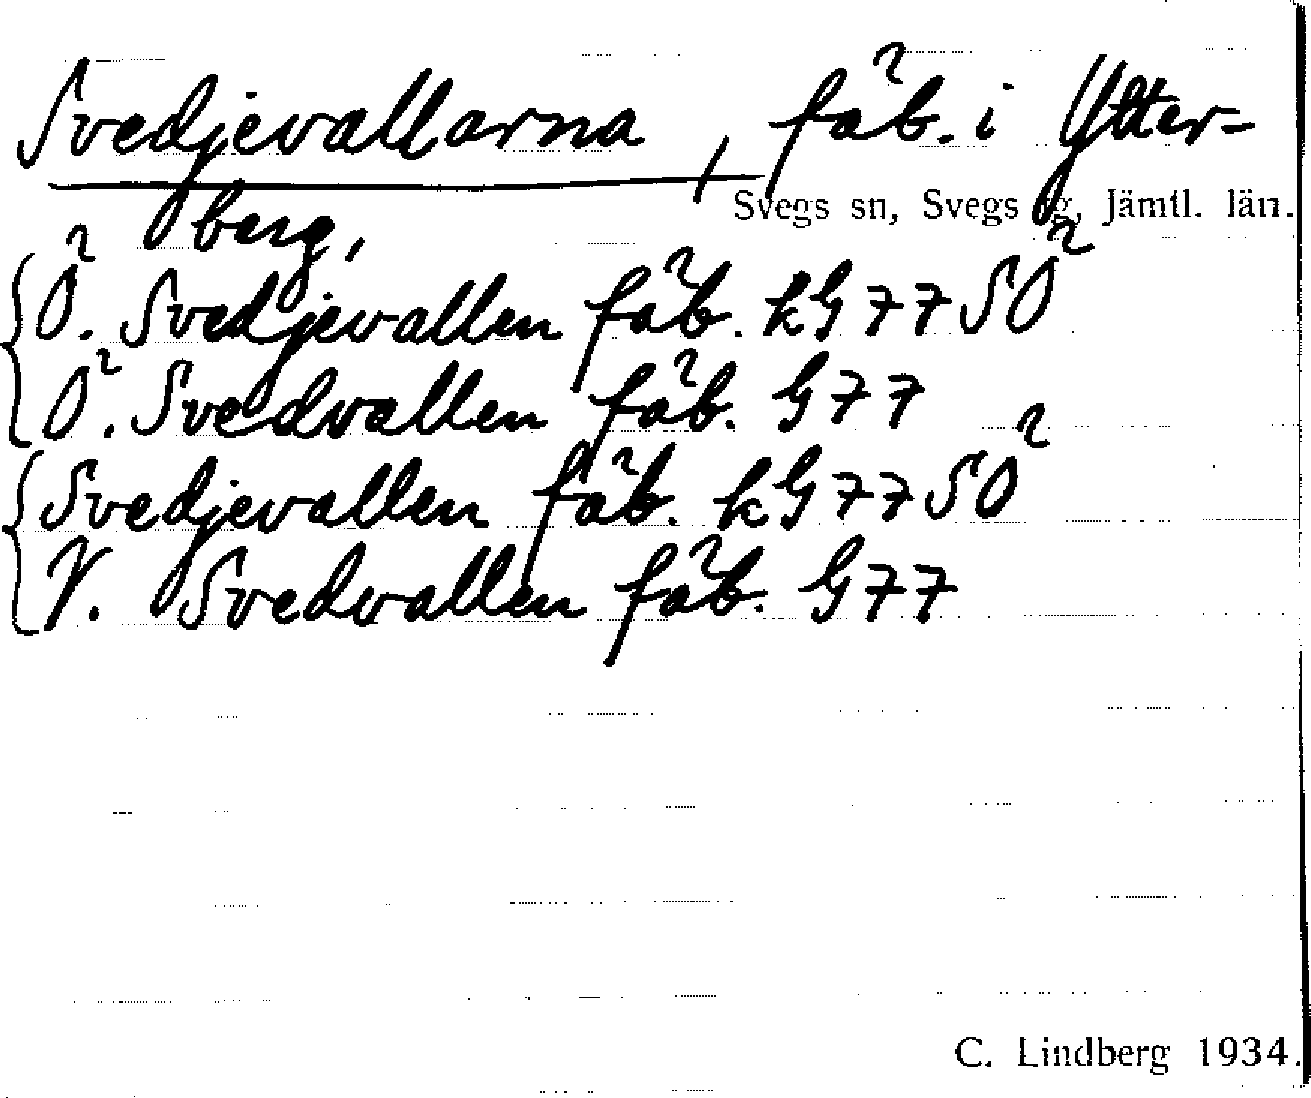 Svedjevallarna, fäb. i Ytter-
Svegs sn, Svegs tg, Jämtl. län.
berg,
Ö. Svedjevallen fäb. kG 77 SÖ
Ö. Svedvallen fäb. G 77
Svedjevallen fäb. kG 77 SÖ
V. Svedvallen fäb. G 77
C. Lindberg 1934.